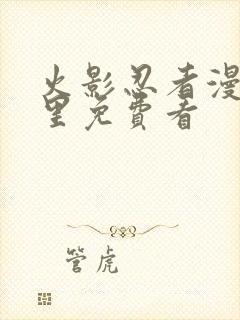 火影忍者漫
里免費看
管虎